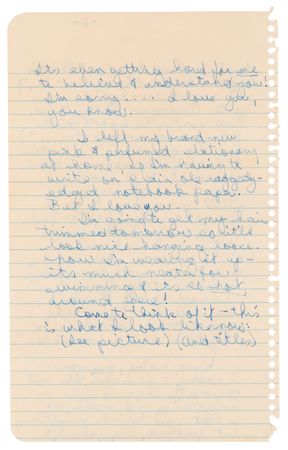 It's even getting hard for me
to believe & understand you.
I'm sorry.... I love you,
you know.
I left my brand-new
pink & perfumed stationery
at home, so I'm having to
write on plain old raggedy-
edged notebook paper.
But I love you.
I'm going to get my hair
trimmed tomorrow so it'll
look nice hanging loose.
Now I'm wearing it up -
its much neater for
swimming & it's so hot
around here!
Come to think of it - this
is what I look like now:
(See picture) (and titles)